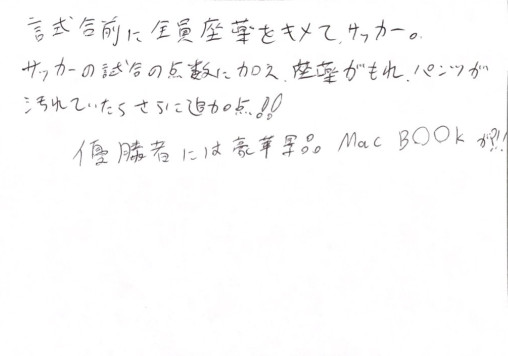 試合前に全員座薬をキメて、サッカー。
サッカーの試合の点数に加え、座薬がもれ、パンツが
汚れていたらさらに追加点!!
優勝者には豪華景品 Mac BOOKが!?!